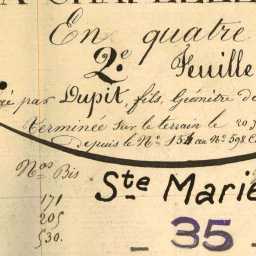 A CHAPELLE
En quatre
2.e Feuille
par Dupit, fils, Géomètre de
terminée sur le terrain le 20
depuis le N.º 154 au N.º 598
N.os Bis
Ste Marie
171
205
530.
- 35 -